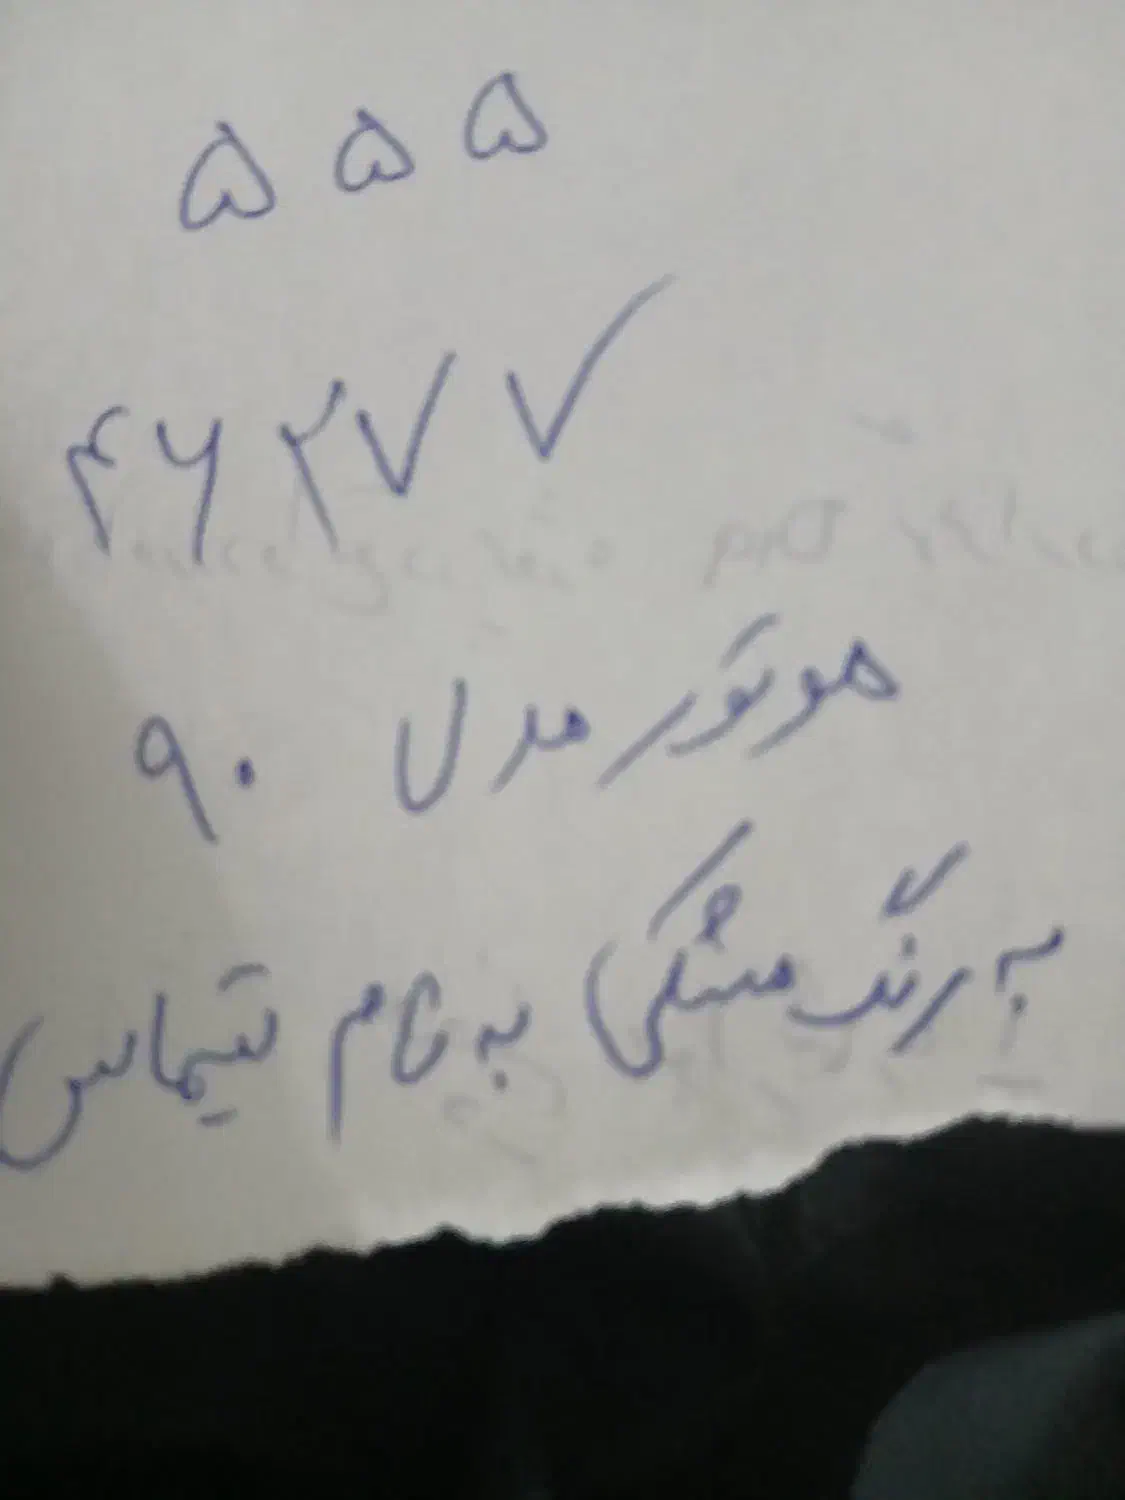 ۵۵۵
۴۶۲۷۷
موتور مدل ۹۰
به رنگ مشکی به نام تیماس